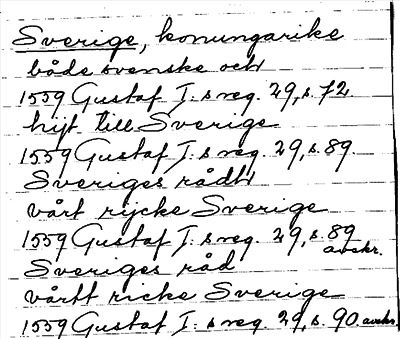 Sverige, konungarike
både svenske och
1559 Gustaf I:s reg. 29, s. 72.
hijt till Sverige
1559 Gustaf I:s reg. 29, s. 89.
Sveriges rådh
vårt rijcke Sverige
1559 Gustaf I:s reg. 29, s. 89
avskr.
Sveriges råd
vårtt ricke Sverige
1559 Gustaf I:s reg. 29, s. 90. avskr.